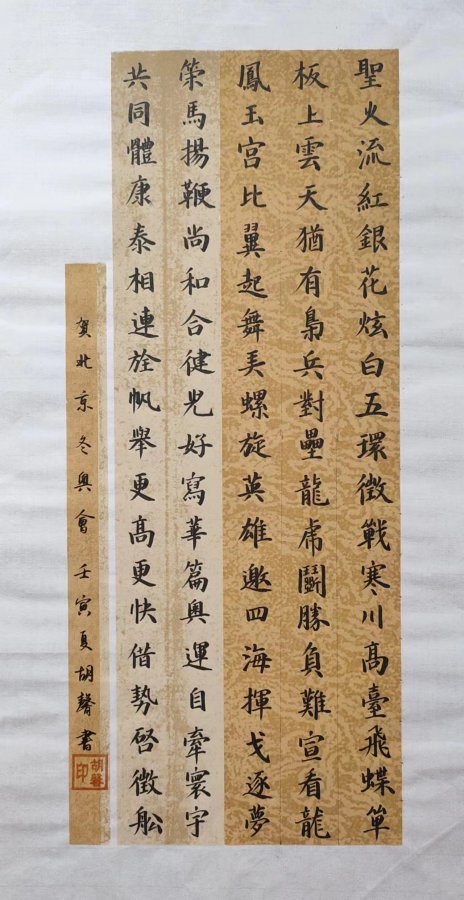 聖火流紅銀花炫白五環徵戰寒川高臺飛蝶單
板上雲天猶有梟兵對壘龍虎鬭勝負難宣看龍
鳳玉宮比翼起舞美螺旋英雄邀四海揮戈逐夢
策馬揚鞭尚和合徤兒好寫華篇奧運自牽寰宇
共同體康泰相連旌帆舉更高更快借勢啓徵舩
賀北京冬奧會 壬寅夏胡馨書
胡馨印